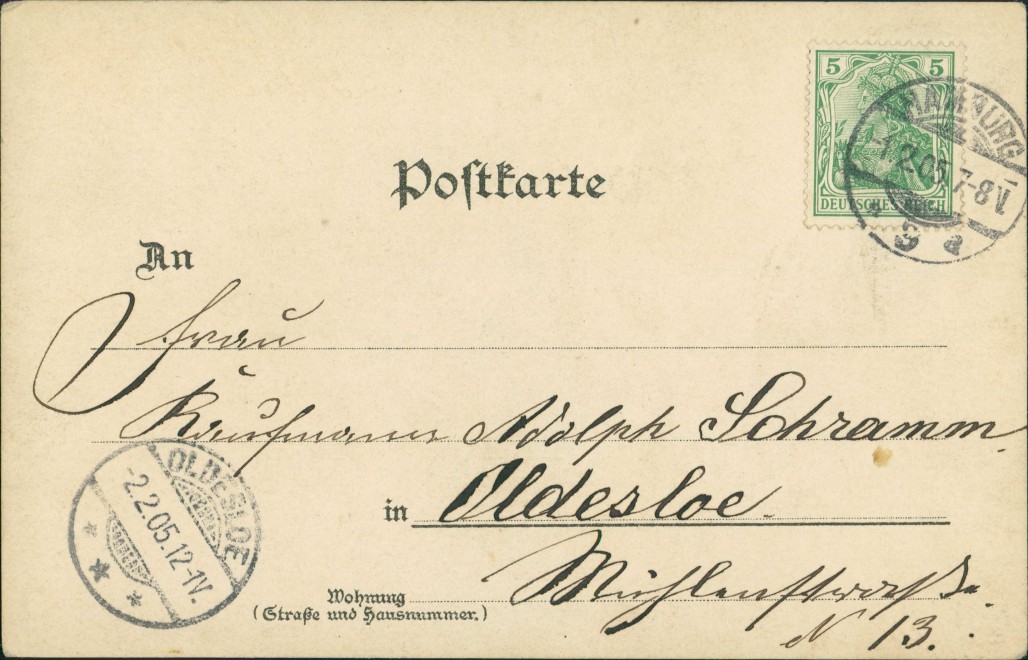 5 5
DEUTSCHES REICH
HAMBURG
2.05. 7-8V.
Postkarte
An
Frau
Kaufmann Adolph Schramm
in Oldesloe.
OLDESLOE
-2.2.05.12-1V.
Mühlenstraße.
Wohnung
(Straße und Hausnummer.)
N 13.